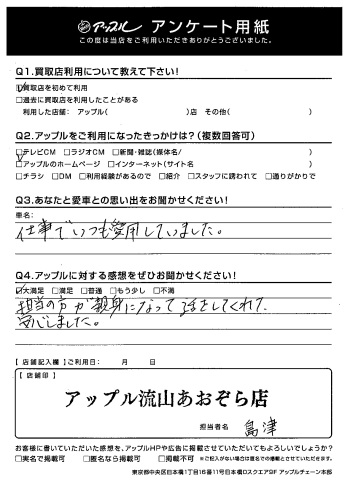 アップル アンケート用紙
この度は当店をご利用いただきありがとうございました。
Q1.買取店利用について教えて下さい!
☑買取店を初めて利用
□過去に買取店を利用したことがある
利用した店舗: アップル( )店 その他( )
Q2.アップルをご利用になったきっかけは?(複数回答可)
□テレビCM □ラジオCM □新聞・雑誌(媒体名/ )
☑アップルのホームページ □インターネット(サイト名 )
□チラシ □DM □利用経験があるので □紹介 □スタッフに誘われて □通りがかりで
Q3.あなたと愛車との思い出をお聞かせください!
車名:
仕事でいつも愛用していました。
Q4.アップルに対する感想をぜひお聞かせください!
☑大満足 □満足 □普通 □もう少し □不満
担当の方が親身になって話をしてくれた
安心しました。
【店舗記入欄】ご利用日: 月 日
【店舗印】
アップル流山あおぞら店
担当者名 島津
お客様に書いていただいた感想を、アップルHPや広告に掲載させていただいてもよろしいでしょうか?
□実名で掲載可 □匿名なら掲載可 □掲載不可 ※ご記入がない場合は匿名での掲載とさせていただきます。
東京都中央区日本橋1丁目16番11号日本橋Dスクエア9F アップルチェーン本部